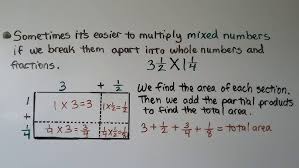 Sometimes it's easier to multiply mixed numbers
if we break them apart into whole numbers and
fractions. 3 1/2 X 1 1/4
3 + 1/2
1 + 1/4
1 x 3 = 3
1 x 1/2 = 1/2
1/4 x 3 = 3/4
1/4 x 1/2 = 1/8
We find the area of each section.
Then we add the partial products
to find the total area.
3 + 1/2 + 3/4 + 1/8 = total area